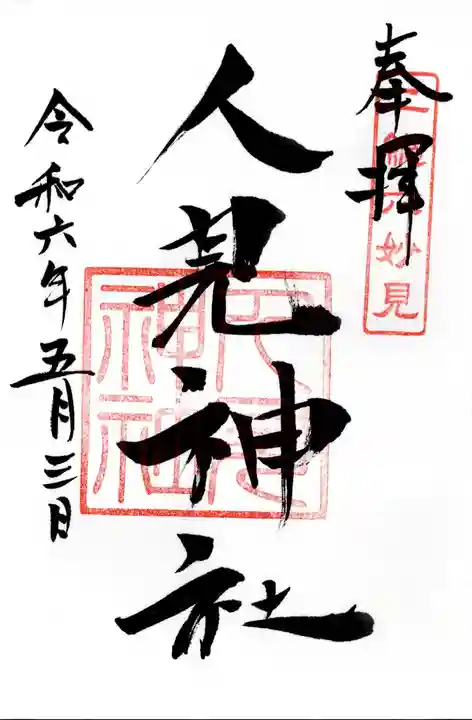 奉拝
妙見
人見神社
人見神社
令和六年五月三日